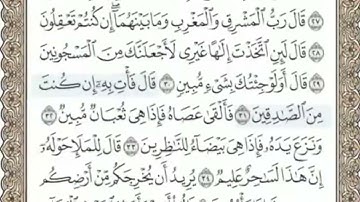 ٢٧ قَالَ رَبُّ ٱلْمَشْرِقِ وَٱلْمَغْرِبِ وَمَا بَيْنَهُمَآۖ إِن كُنتُمْ تَعْقِلُونَ
٢٨ قَالَ لَئِنِ ٱتَّخَذْتَ إِلَٰهًا غَيْرِى لَأَجْعَلَنَّكَ مِنَ ٱلْمَسْجُونِينَ
٢٩ قَالَ أَوَلَوْ جِئْتُكَ بِشَىْءٍ مُّبِينٍ ٣٠ قَالَ فَأْتِ بِهِۦٓ إِن كُنتَ
مِنَ ٱلصَّٰدِقِينَ ٣١ فَأَلْقَىٰ عَصَاهُ فَإِذَا هِىَ ثُعْبَانٌ مُّبِينٌ ٣٢
وَنَزَعَ يَدَهُۥ فَإِذَا هِىَ بَيْضَآءُ لِلنَّٰظِرِينَ ٣٣ قَالَ لِلْمَلَإِ حَوْلَهُۥٓ
إِنَّ هَٰذَا لَسَٰحِرٌ عَلِيمٌ ٣٤ يُرِيدُ أَن يُخْرِجَكُم مِّنْ أَرْضِكُم